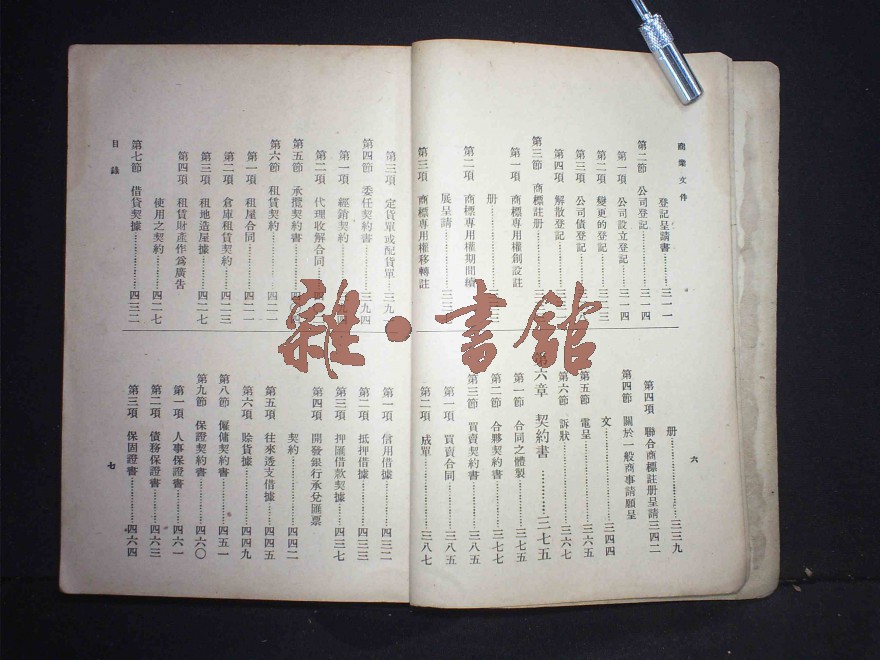 商業文件
登記呈請書………三一一
第二節 公司登記………三一四
第一項 公司設立登記………三一四
第二項 變更的登記
第三項 公司債登記
第四項 解散登記
第三節 商標註册
第一項 商標專用權創設註
册
第二項 商標專用權期間續
展呈請
第三項 商標專用權移轉註
册………三三九
第四項 聯合商標註册呈請三四二
第四節 關於一般商事請願呈
文………三四四
第五節 電呈………三六五
第六節 訴狀………三六七
第六章 契約書………三七五
第一節 合同之體製………三七五
第二節 合夥契約書………三七七
第三節 買賣契約書………三八五
第一項 買賣合同………三八五
第二項 成單………三八七
六
第三項 定貨單或配貨單…三九
第四節 委任契約書………三九四
第一項 經銷契約
第二項 代理收解合同
第五節 承攬契約書
第六節 租賃契約………四二一
第一項 租屋合同………四二一
第二項 倉庫租賃契約………四二三
第三項 租地造屋據………四二七
第四項 租賃財產作爲廣告
使用之契約………四二七
第七節 借貸契據………四三二
第一項 信用借據………四三二
第二項 抵押借據………四三三
第三項 押匯借款契據………四三七
第四項 開發銀行承兌匯票
契約………四四二
第五項 往來透支借據………四四五
第六項 賒貨據………四四九
第八節 僱傭契約書………四五一
第九節 保證契約書………四六〇
第一項 人事保證書………四六一
第二項 債務保證書………四六三
第三項 保固證書………四六四
目錄
七
雜·書館